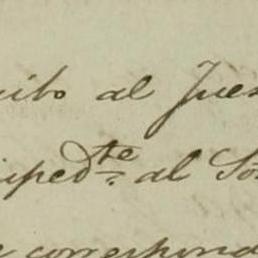 uito al Jues
iped.te al So
e correspond